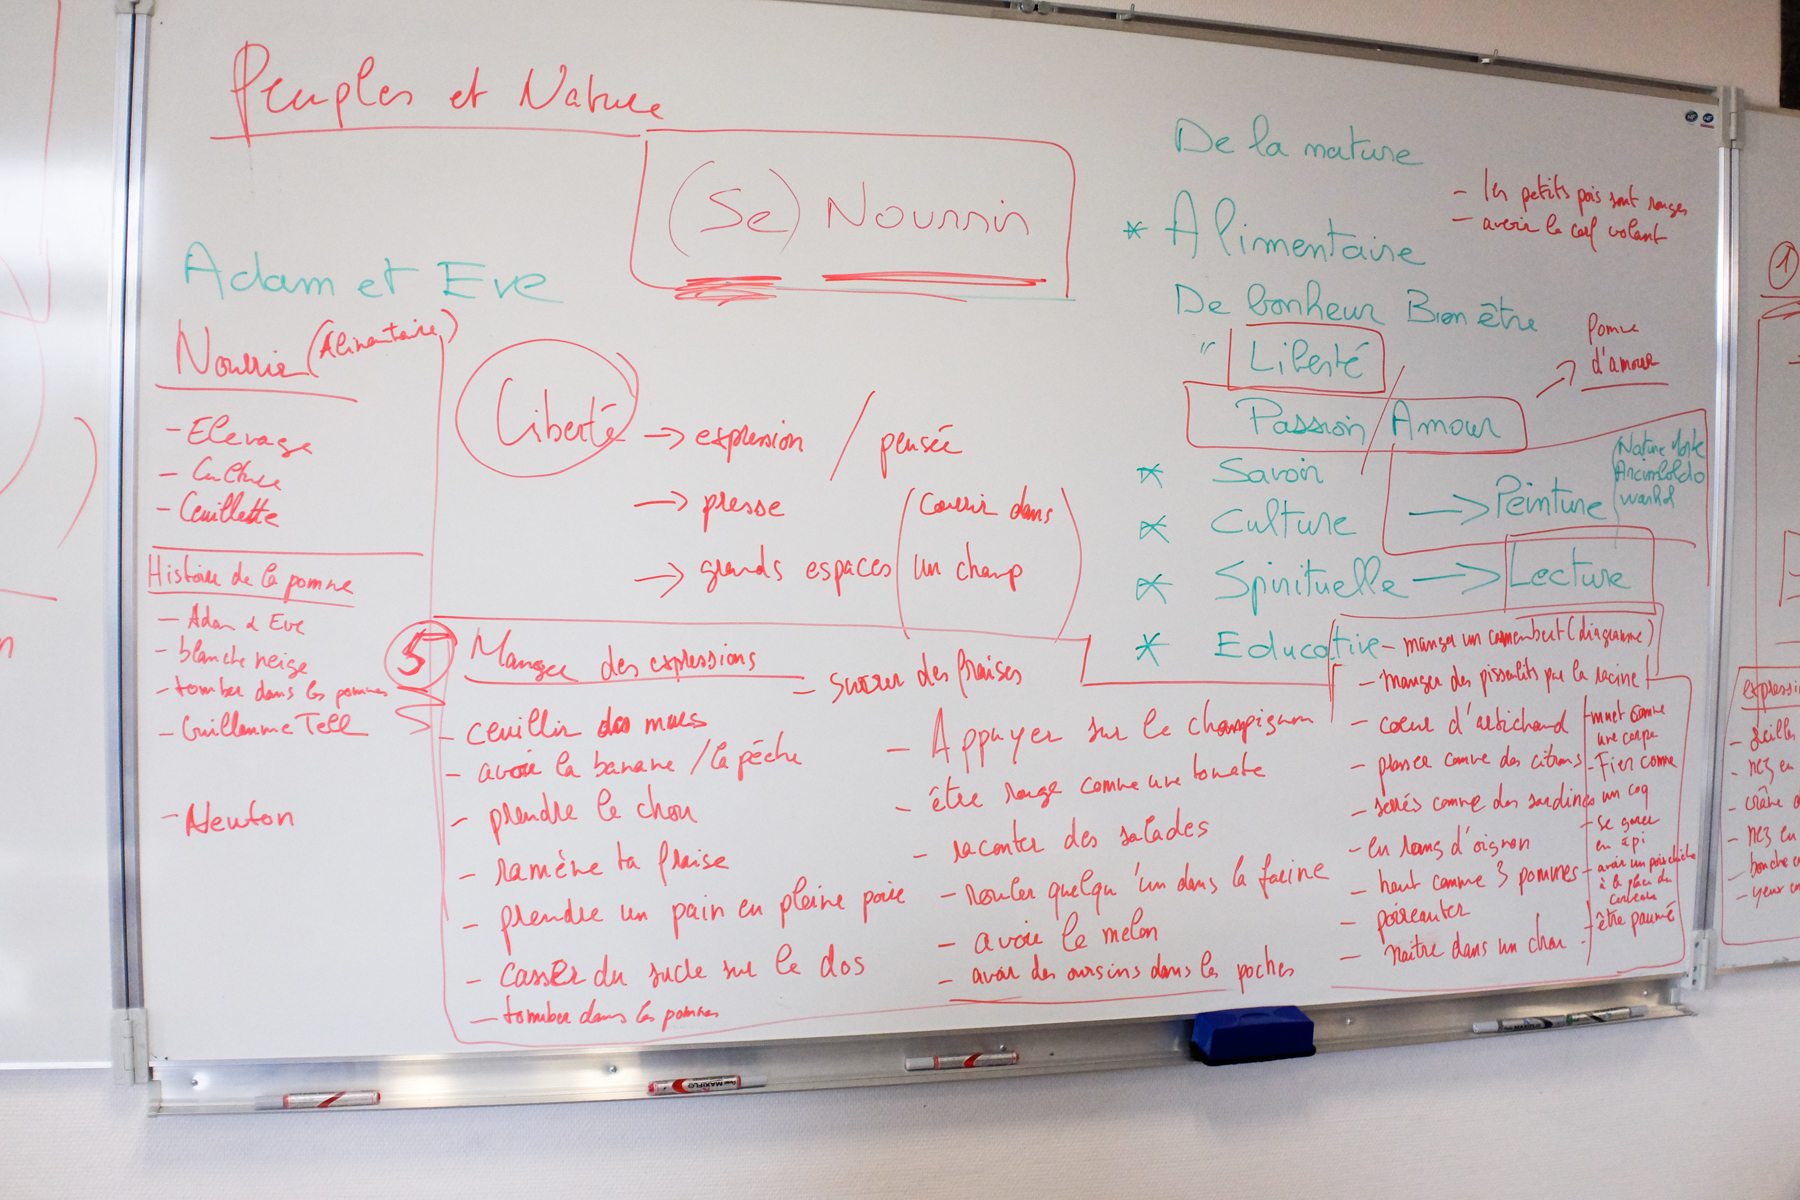 Peuples et Nature
(Se) Nourrir
Adam et Eve
Nourrir (Alimentaire)
- Elevage
- Culture
- Ceuillette
Histoire de la pomme
- Adam & Eve
- blanche neige
- tomber dans les pommes
- Guillaume Tell
- Newton
Liberté
→ expression / pensée
→ presse
→ grands espaces (courir dans un champ)
De la nature
* Alimentaire
De bonheur Bien être
" Liberté
Passion / Amour
Pomme
d'amour
* Savoir
* Culture
* Spirituelle → Lecture
* Educative
→ Peinture
Nature Morte
Arcimboldo
Warhol
- les petits pois sont rouges
- avoir le cerf volant
5 Manger des expressions
- sucrer des fraises
- ceuillir des mures
- avoir la banane / la pêche
- prendre le chou
- ramène ta fraise
- prendre un pain en pleine poire
- casser du sucre sur le dos
- tomber dans les pommes
- Appuyer sur le champignon
- être rouge comme une tomate
- raconter des salades
- rouler quelqu'un dans la farine
- avoir le melon
- avoir des oursins dans les poches
- manger un camembert (diagramme)
- manger des pissenlits par la racine
- coeur d'artichaud
- presser comme des citrons
- serrés comme des sardines
- en rangs d'oignon
- haut comme 3 pommes
- poireauter
- naitre dans un chou
- muet comme
une carpe
- Fier comme
un coq
- se garer
en épi
- avoir un pois chiche
à la place du
cerveau
- être paumé
1
expressi
- nez en
- crâne
- nez en
- bouche
- yeux